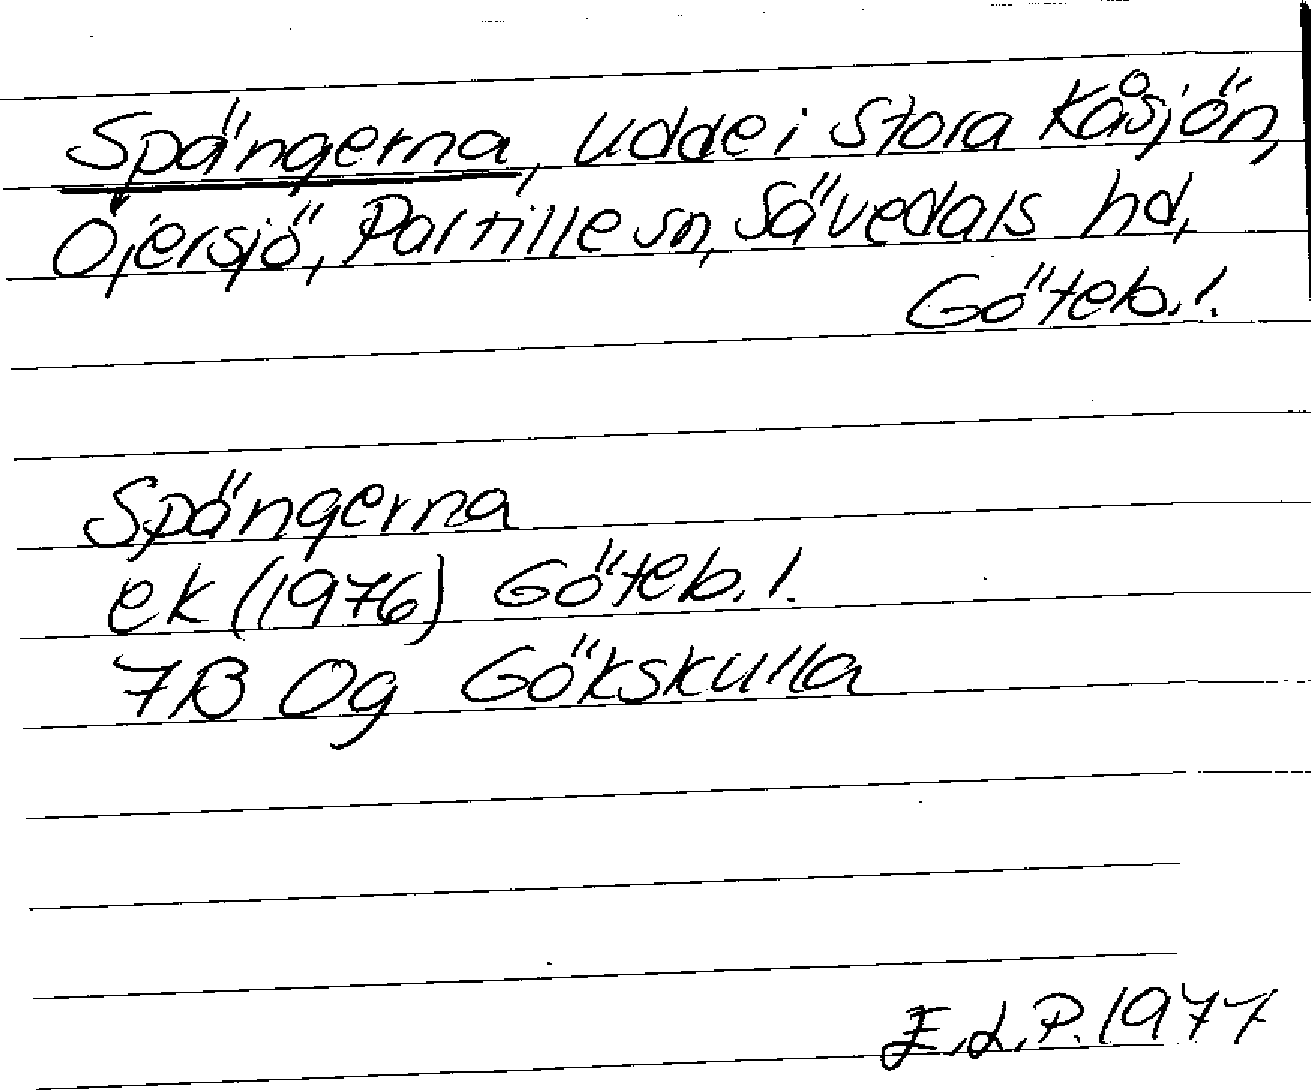 Spängerna, udde i Stora Kåsjön,
Öjersjö, Partille sn, Sävedals hd,
Göteb. l.
Spängerna
ek (1976) Göteb. l.
7B 0g Gökskulla
E.L.P. 1977